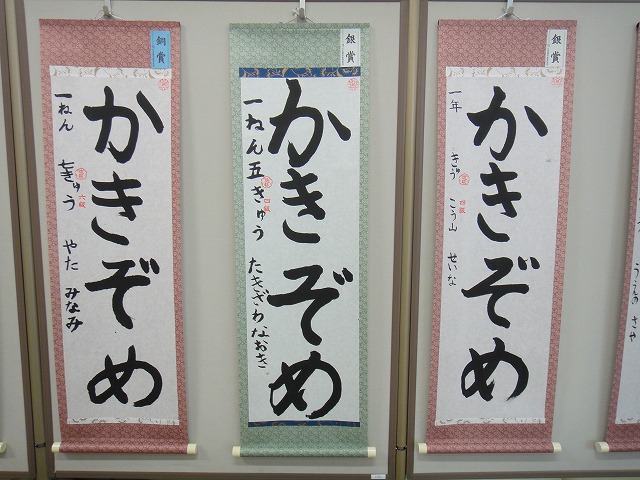 銅賞
かきぞめ
一ねん 七きゅう やた みなみ
六級
銀賞
かきぞめ
一ねん 五きゅう たきざわ なおき
四級
銀賞
かきぞめ
一年 きゅう こう山 せいな
四級
さや